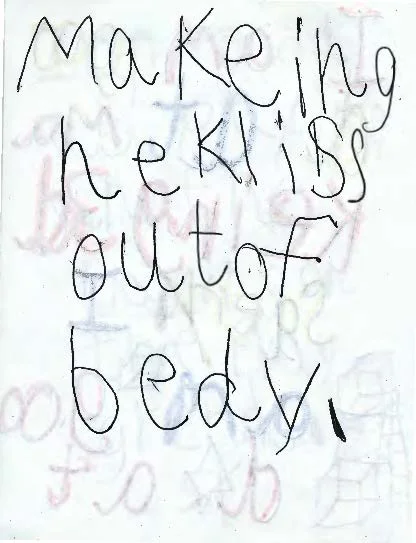 Makeing
hekliss
outof
bedy.